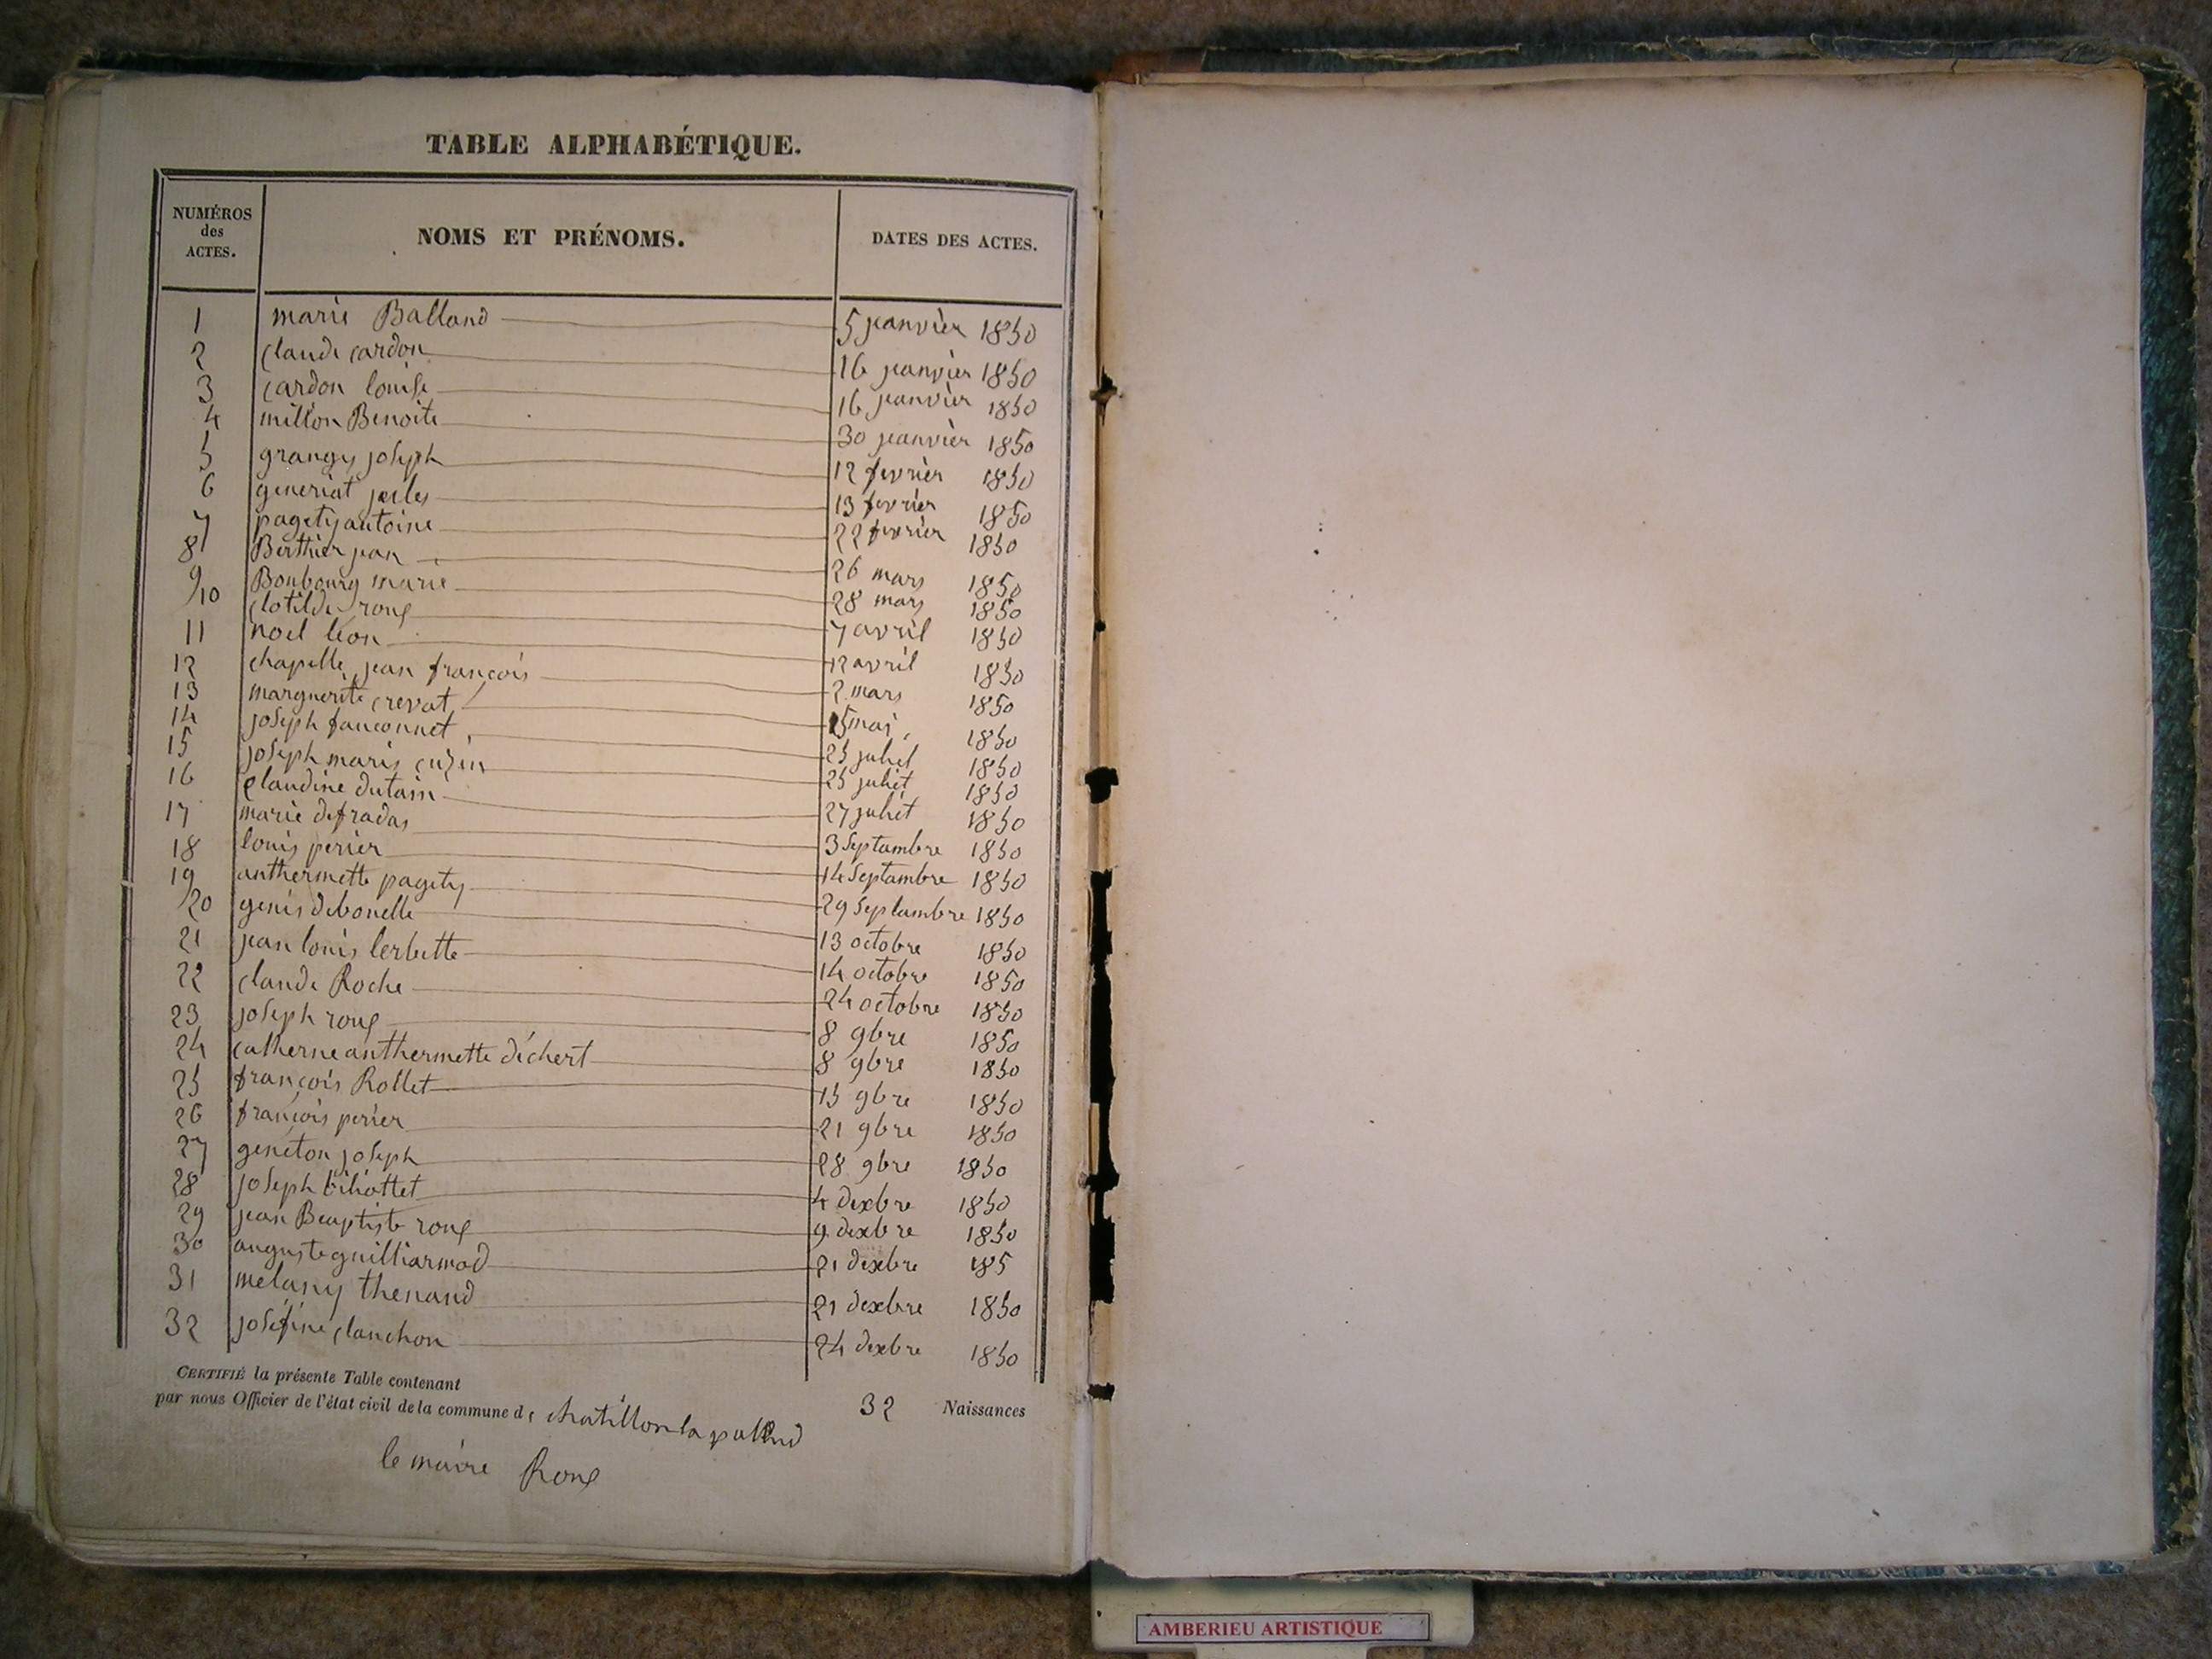 TABLE ALPHABÉTIQUE.
NUMÉROS des ACTES. NOMS ET PRÉNOMS. DATES DES ACTES.
1 marie Balland 5 janvier 1850
2 claude cardon 16 janvier 1850
3 cardon louise 16 janvier 1850
4 millon Benoite 30 janvier 1850
5 grangy joseph 12 fevrier 1850
6 generiat jules 13 fevrier 1850
7 pagety antoine 22 fevrier 1850
8 Berthier jean 26 mars 1850
9 Bonbourg marie 28 mars 1850
10 clotilde roux 7 avril 1850
11 noel leon 12 avril 1850
12 chapelle jean françois 2 mars 1850
13 marguerite crevat 15 mai 1850
14 joseph fauconnet 25 juliet 1850
15 joseph marie cuzin 25 juliet 1850
16 claudine dutain 27 juliet 1850
17 marie defradas 3 Septambre 1850
18 louis perier 14 Septambre 1850
19 anthermette pagety 29 Septambre 1850
20 genis debonelle 13 octobre 1850
21 jean louis lerbette 14 octobre 1850
22 claude Roche 24 octobre 1850
23 joseph roux 8 9bre 1850
24 catherne anthermette déchert 8 9bre 1850
25 françois Rollet 15 9bre 1850
26 françois perier 21 9bre 1850
27 geneton joseph 28 9bre 1850
28 joseph 4 dexbre 1850
29 jean Beaptiste roux 9 dexbre 1850
30 auguste guilliarmod 21 dexbre 185
31 melany thenand 21 dexbre 1850
32 joséfine clanchon 24 dexbre 1850
CERTIFIÉ la présente Table contenant 32 Naissances
par nous Officier de l'état civil de la commune de chatillon la pallud
le maire Roux
AMBERIEU ARTISTIQUE